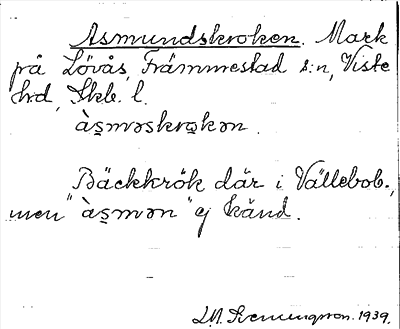 Åsmundskroken. Mark
på Lövås, Främmestad s:n, Viste
hd, Skb. l.
àsməskrokən.
Bäckkrök där i Vällebob.,
men "àsmən" ej känd.
1939.